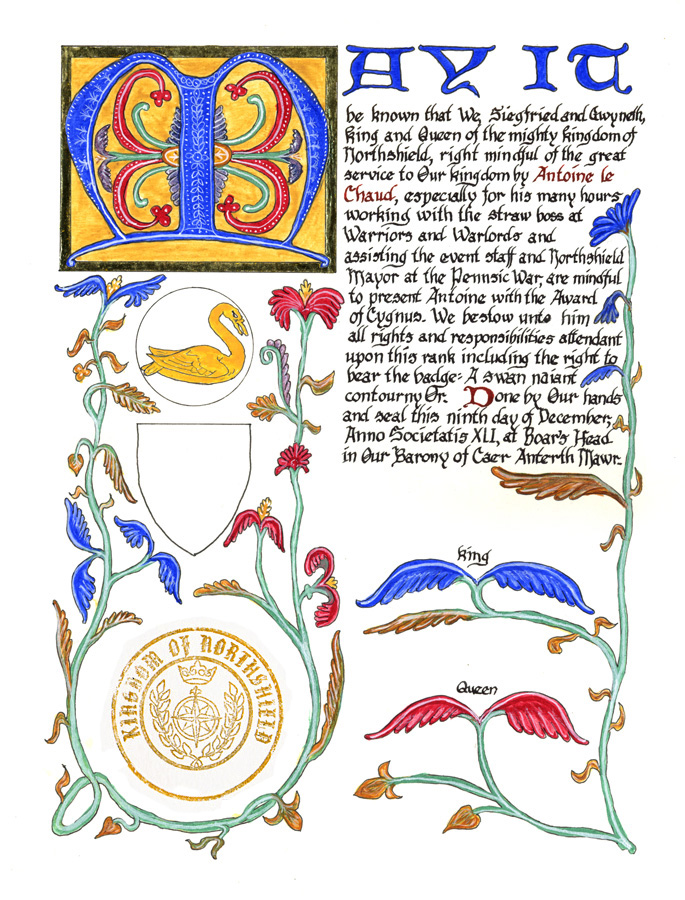 MAY IT
be known that We, Siegfried and Gwyneth,
King and Queen of the mighty kingdom of
Northshield, right mindful of the great
service to Our kingdom by Antoine le
Chaud, especially for his many hours
working with the straw boss at
Warriors and Warlords and
assisting the event staff and Northshield
Mayor at the Pennsic War, are mindful
to present Antoine with the Award
of Cygnus. We bestow unto him
all rights and responsibilities attendant
upon this rank including the right to
bear the badge: A swan naiant
contourny Or. Done by Our hands
and seal this ninth day of December,
Anno Societatis XLI, at Boar's Head
in Our Barony of Caer Anterth Mawr.
King
Queen
KINGDOM OF NORTHSHIELD